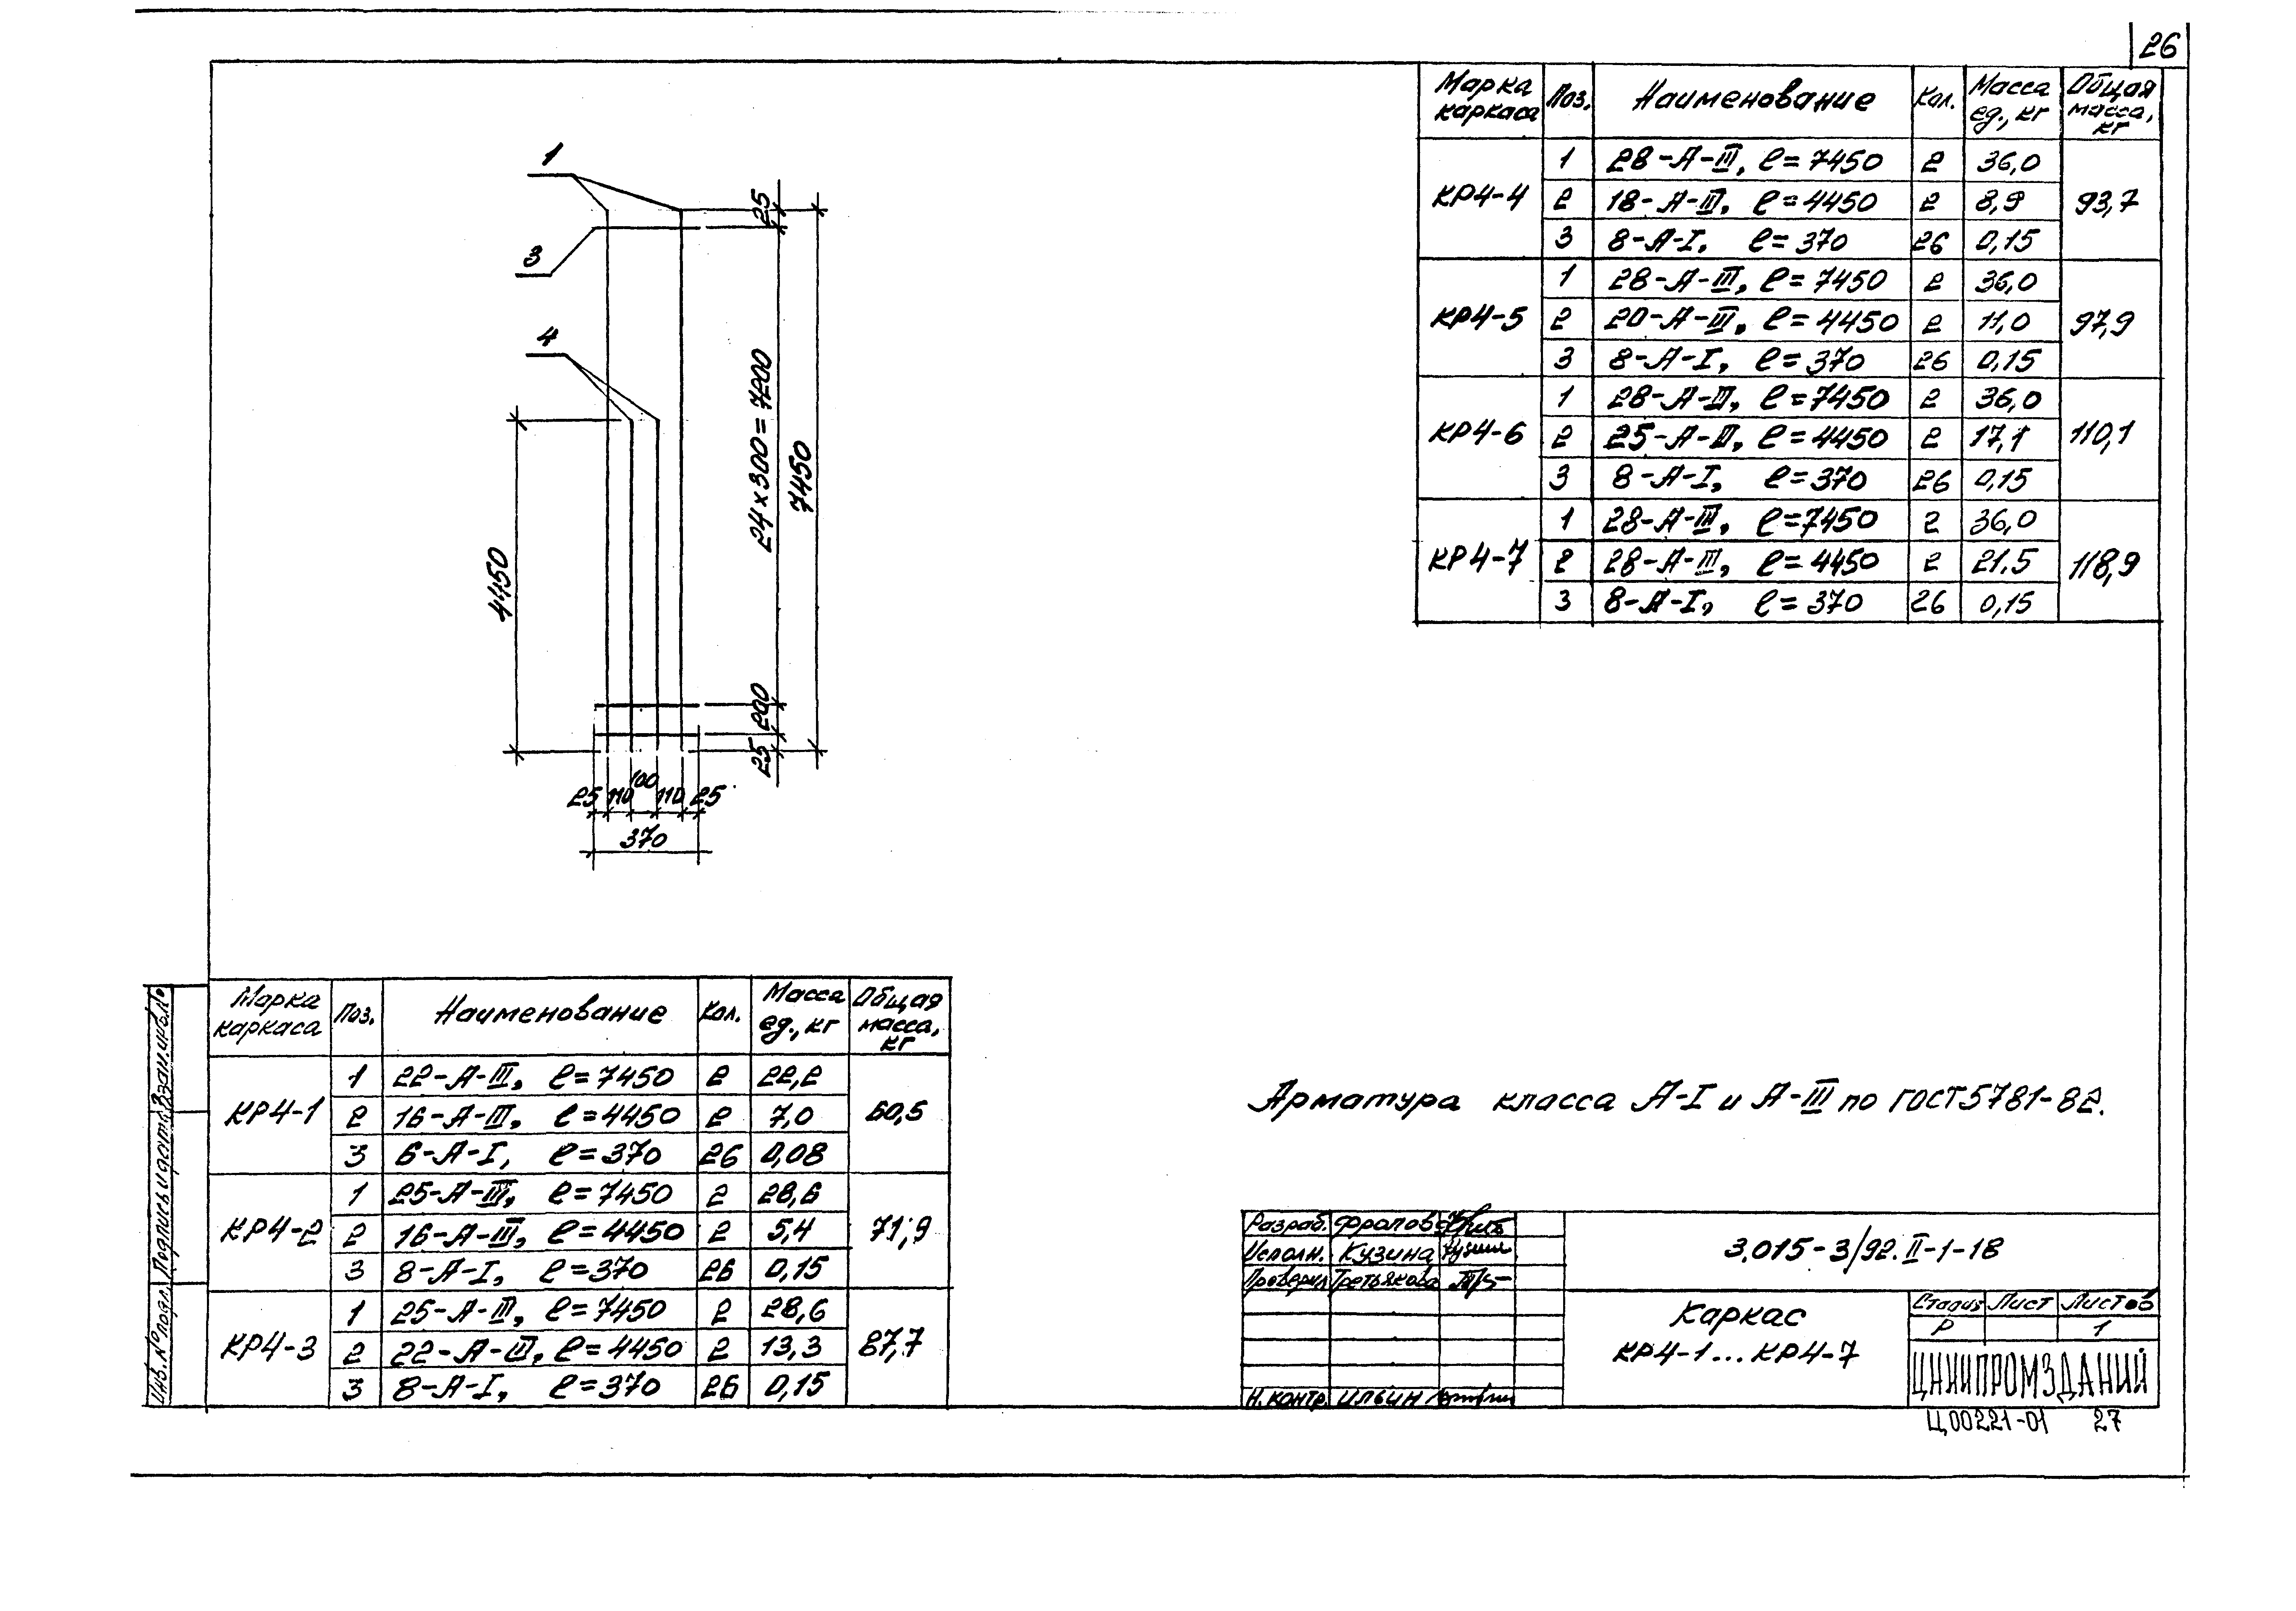 26
Марка каркаса Поз. Наименование Кол. Масса ед., кг Общая масса, кг
КР4-4 1 28-А-III, ℓ=7450 2 36,0 93,7
2 18-А-III, ℓ=4450 2 8,9
3 8-А-I, ℓ=370 26 0,15
КР4-5 1 28-А-III, ℓ=7450 2 36,0 97,9
2 20-А-III, ℓ=4450 2 11,0
3 8-А-I, ℓ=370 26 0,15
КР4-6 1 28-А-III, ℓ=7450 2 36,0 110,1
2 25-А-III, ℓ=4450 2 17,1
3 8-А-I, ℓ=370 26 0,15
КР4-7 1 28-А-III, ℓ=7450 2 36,0 118,9
2 28-А-III, ℓ=4450 2 21.5
3 8-А-I, ℓ=370 26 0,15
1
3
4
25
24×300=7200
7450
4450
200
25
25 110 100 110 25
370
Марка каркаса Поз. Наименование Кол. Масса ед., кг Общая масса, кг
КР4-1 1 22-А-III, ℓ=7450 2 22,2 60,5
2 16-А-III, ℓ=4450 2 7,0
3 6-А-I, ℓ=370 26 0,08
КР4-2 1 25-А-III, ℓ=7450 2 28,6 71,9
2 16-А-III, ℓ=4450 2 5,4
3 8-А-I, ℓ=370 26 0,15
КР4-3 1 25-А-III, ℓ=7450 2 28,6 87,7
2 22-А-III, ℓ=4450 2 13,3
3 8-А-I, ℓ=370 26 0,15
Арматура класса А-I и А-III по ГОСТ 5781-82.
Взам.инв.№
Подпись и дата
Инв.№ подл.
Разраб. Фролов
Исполн. Кузина
Проверил Третьякова
Н.контр. Ильин
3.015-3/92.II-1-18
Каркас
КР4-1...КР4-7
Стадия Лист Листов
Р 1
ЦНИИПРОМЗДАНИЙ
Ц00221-01 27